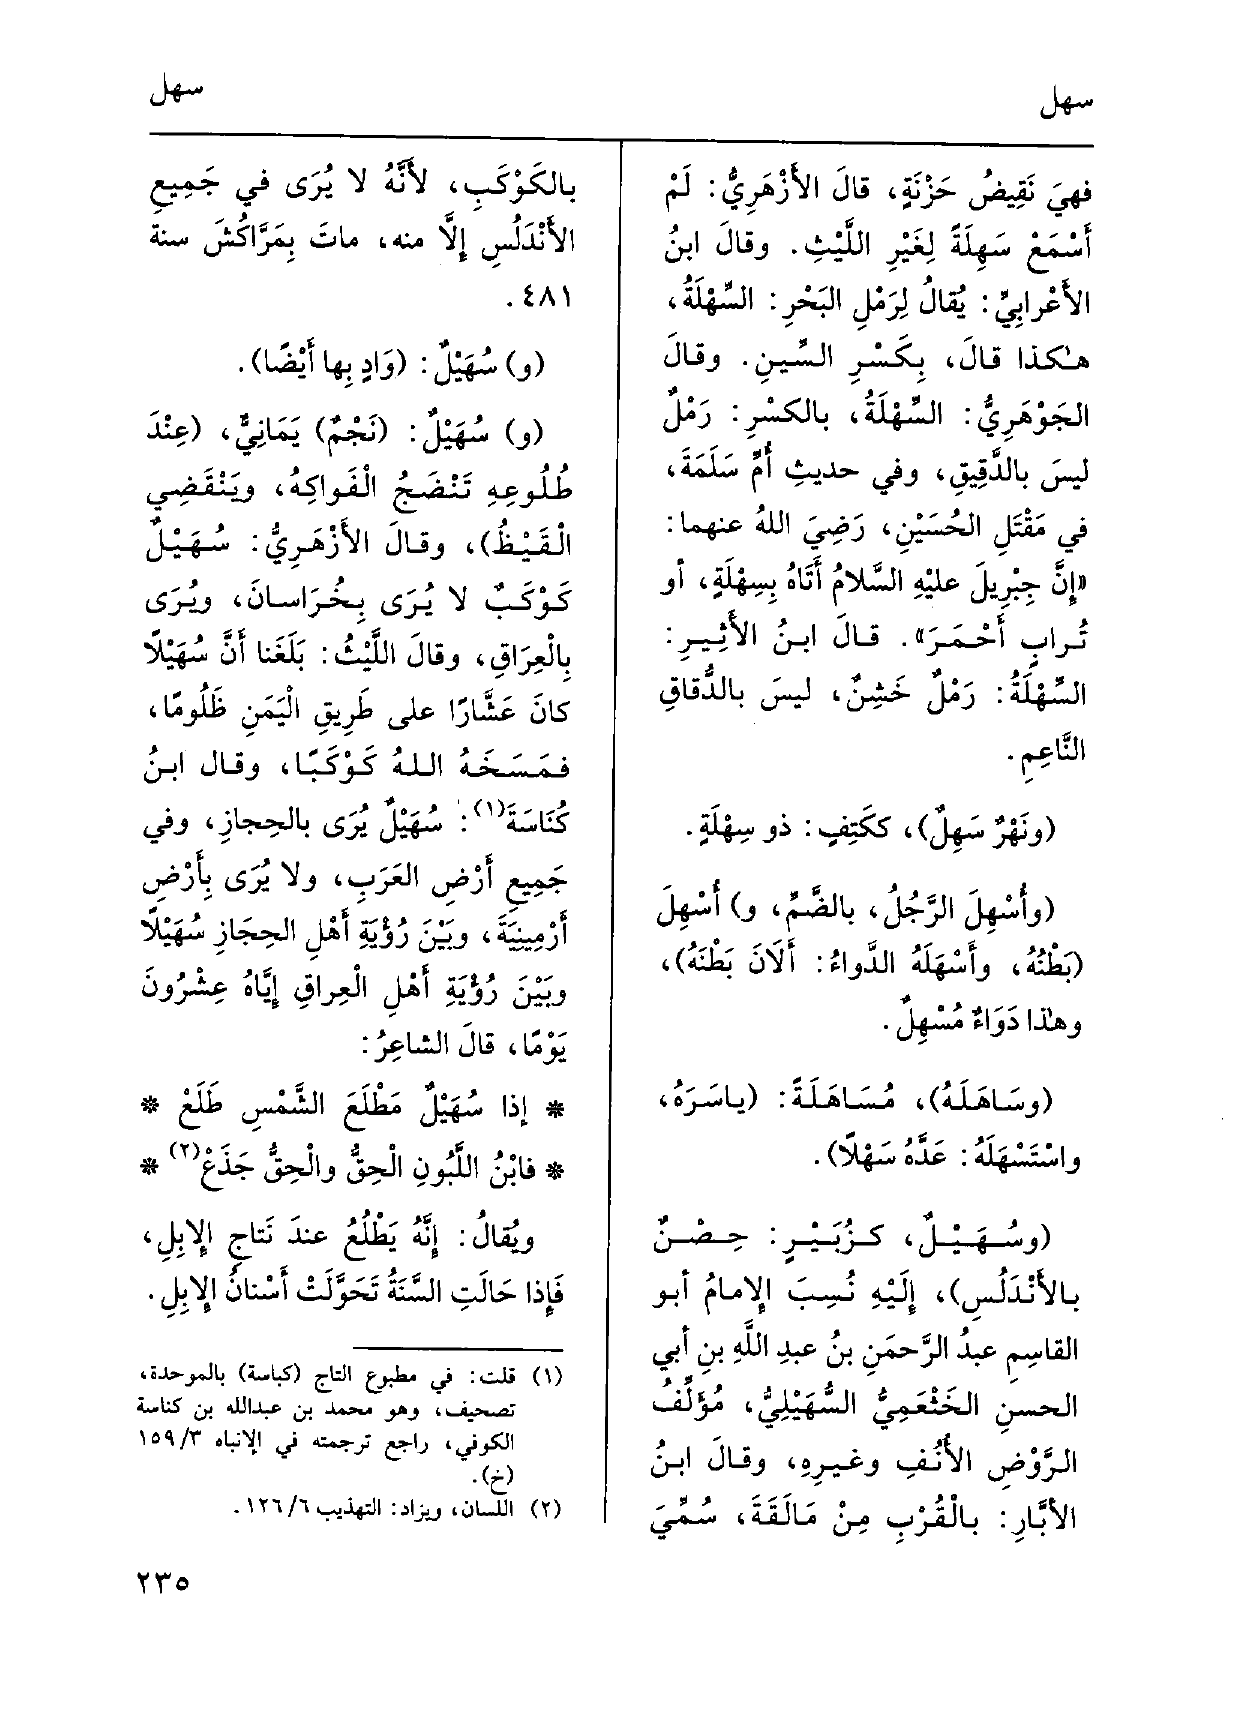 سهل
سهل
فهيَ نَقِيضُ حَزْنَةٍ، قالَ الأَزْهَرِيُّ: لَمْ
أَسْمَعْ سَهِلَةً لِغَيْرِ اللَّيْثِ. وقالَ ابنُ
الأَعْرابِيِّ: يُقالُ لِرَمْلِ البَحْرِ: السِّهْلَةُ،
هٰكذا قالَ، بِكَسْرِ السِّينِ. وقالَ
الجَوْهَرِيُّ: السِّهْلَةُ، بالكسْرِ: رَمْلٌ
ليسَ بالدَّقِيقِ، وفي حديثِ أُمِّ سَلَمَةَ،
في مَقْتَلِ الحُسَيْنِ، رَضِيَ اللهُ عنهما:
«إِنَّ جِبْرِيلَ عليْهِ السَّلامُ أَتَاهُ بِسِهْلَةٍ، أو
تُرابٍ أَحْمَرَ». قالَ ابنُ الأَثِيرِ:
السِّهْلَةُ: رَمْلٌ خَشِنٌ، ليسَ بالدُّقاقِ
النَّاعِمِ.
(ونَهْرٌ سَهِلٌ)، ككَتِفٍ: ذو سِهْلَةٍ.
(وأُسْهِلَ الرَّجُلُ، بالضَّمِّ، و) أُسْهِلَ
(بَطْنُهُ، وأَسْهَلَهُ الدَّواءُ: أَلَانَ بَطْنَهُ)،
وهٰذا دَوَاءٌ مُسْهِلٌ.
(وسَاهَلَهُ)، مُسَاهَلَةً: (ياسَرَهُ،
واسْتَسْهَلَهُ: عَدَّهُ سَهْلًا).
(وسُهَيْلٌ، كزُبَيْرٍ: حِصْنٌ
بالأَنْدَلُسِ)، إِلَيْهِ نُسِبَ الإِمامُ أبو
القاسِمِ عبدُ الرَّحمَنِ بنُ عبدِ اللَّهِ بنِ أبي
الحسنِ الخَثْعَمِيُّ السُّهَيْلِيُّ، مُؤَلِّفُ
الرَّوْضِ الأُنُفِ وغيرِهِ، وقالَ ابنُ
الأبَّارِ: بالْقُرْبِ مِنْ مَالَقَةَ، سُمِّيَ
بالكَوْكَبِ، لأَنَّهُ لا يُرَى في جَمِيعِ
الأَنْدَلُسِ إِلَّا منه، ماتَ بِمَرَّاكُشَ سنة
٤٨١.
(و) سُهَيْلٌ: (وَادٍ بِها أَيْضًا).
(و) سُهَيْلٌ: (نَجْمٌ) يَمَانِيٌّ، (عِنْدَ
طُلُوعِهِ تَنْضَجُ الْفَواكِهُ، ويَنْقَضِي
الْقَيْظُ)، وقالَ الأَزْهَرِيُّ: سُهَيْلٌ
كَوْكَبٌ لا يُرَى بِخُرَاسانَ، ويُرَى
بِالْعِرَاقِ، وقالَ اللَّيْثُ: بَلَغَنا أَنَّ سُهَيْلًا
كانَ عَشَّارًا على طَرِيقِ الْيَمَنِ ظَلُومًا،
فمَسَخَهُ اللهُ كَوْكَبًا، وقال ابنُ
كُنَاسَةَ(١): سُهَيْلٌ يُرَى بالحِجازِ، وفي
جَمِيعِ أَرْضِ العَرَبِ، ولا يُرَى بِأَرْضِ
أَرْمِينِيَةَ، وبَيْنَ رُؤْيَةِ أَهْلِ الحِجازِ سُهَيْلًا
وبَيْنَ رُؤْيَةِ أَهْلِ الْعِراقِ إِيَّاهُ عِشْرُونَ
يَوْمًا، قالَ الشاعِرُ:
* إذا سُهَيْلٌ مَطْلَعَ الشَّمْسِ طَلَعْ *
* فابْنُ اللَّبُونِ الْحِقُّ والْحِقُّ جَذَعْ(٢) *
ويُقالُ: إِنَّهُ يَطْلُعُ عندَ نَتاجِ الإِبِلِ،
فَإِذا حَالَتِ السَّنَةُ تَحَوَّلَتْ أَسْنانُ الإِبِلِ.
(١) قلت: في مطبوع التاج (كباسة) بالموحدة،
تصحيف، وهو محمد بن عبدالله بن كناسة
الكوفي، راجع ترجمته في الإنباه ١٥٩/٣
(خ).
(٢) اللسان، ويزاد: التهذيب ١٢٦/٦.
٢٣٥